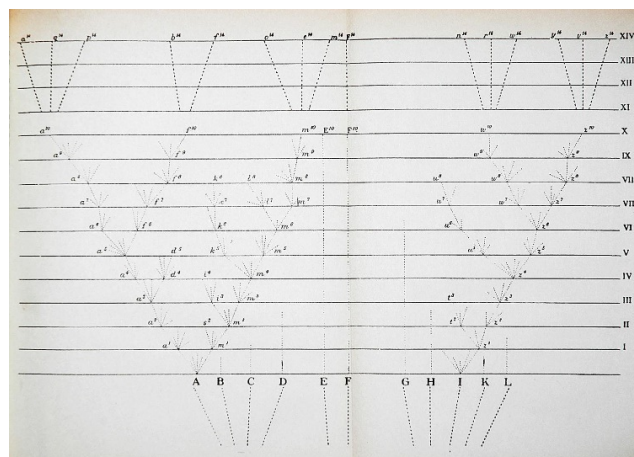 a¹⁴ q¹⁴ p¹⁴ b¹⁴ f¹⁴ o¹⁴ e¹⁴ m¹⁴ F¹⁴ n¹⁴ r¹⁴ w¹⁴ y¹⁴ v¹⁴ z¹⁴ XIV
XIII
XII
XI
a¹⁰ f¹⁰ m¹⁰ E¹⁰ F¹⁰ w¹⁰ z¹⁰ X
a⁹ f⁹ m⁹ w⁹ z⁹ IX
a⁸ f⁸ k⁸ l⁸ m⁸ u⁸ w⁸ z⁸
a⁷ f⁷ l⁷ m⁷ u⁷ w⁷ z⁷ VII
a⁶ f⁶ k⁶ m⁶ u⁶ z⁶ VI
a⁵ d⁵ k⁵ m⁵ u⁵ z⁵ V
a⁴ d⁴ i⁴ m⁴ z⁴ IV
a³ i³ m³ t³ z³ III
a² s² m² t² z² II
a¹ m¹ z¹ I
A B C D E F G H I K L